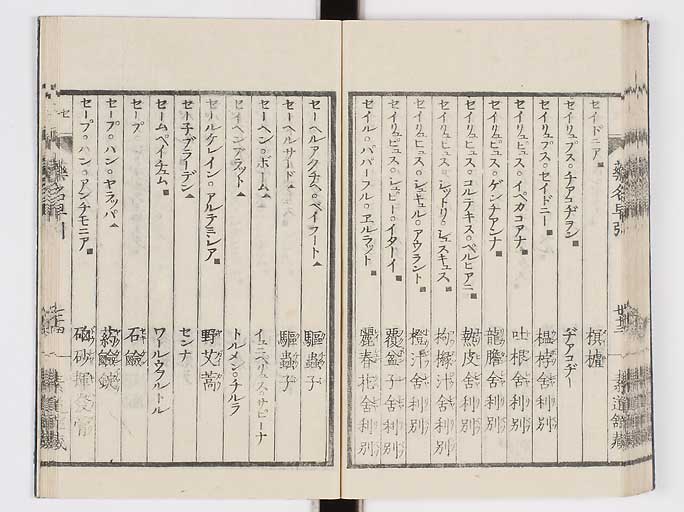 セイドニア 榠樝
セイリュプス。チアコヂヲン ヂアコヂー
セイリュプス。セイドニー 榲桲舎利別
セイリュプス。イペカコアナ 吐根舎利別
セイリュピュス。ゲンチアンナ 龍膽舎利別
セイリュピュス。コルテキス。ペルヒアニ 皮舎利別
セイリュピュス。シュスキュス 拘櫞汁舎利別
セイリュヒュス。シュキュル。アウラント 橙汁舎利別
セイリュピュス。イターイ 覆盆子舎利別
セイル。パパーフル。エルラット 舎利別
薬名早引
廿三
セーヘルアクチヘ。ベイフート 驅蟲子
セーヘルサード 驅蟲子
セーヘン。ボーム イュニペリュス。サビーナ
セイヘンブラット トルメンチルラ
セールケレイン。アルテミシア 野艾蒿
セー子ブラーデン センナ
セームペイチェム ワールウヲルトル
セープ 石鹼
セープ。ハン。ヤラッパ
セープ。ハン。アンチモニア
セ
薬名早引
廿四